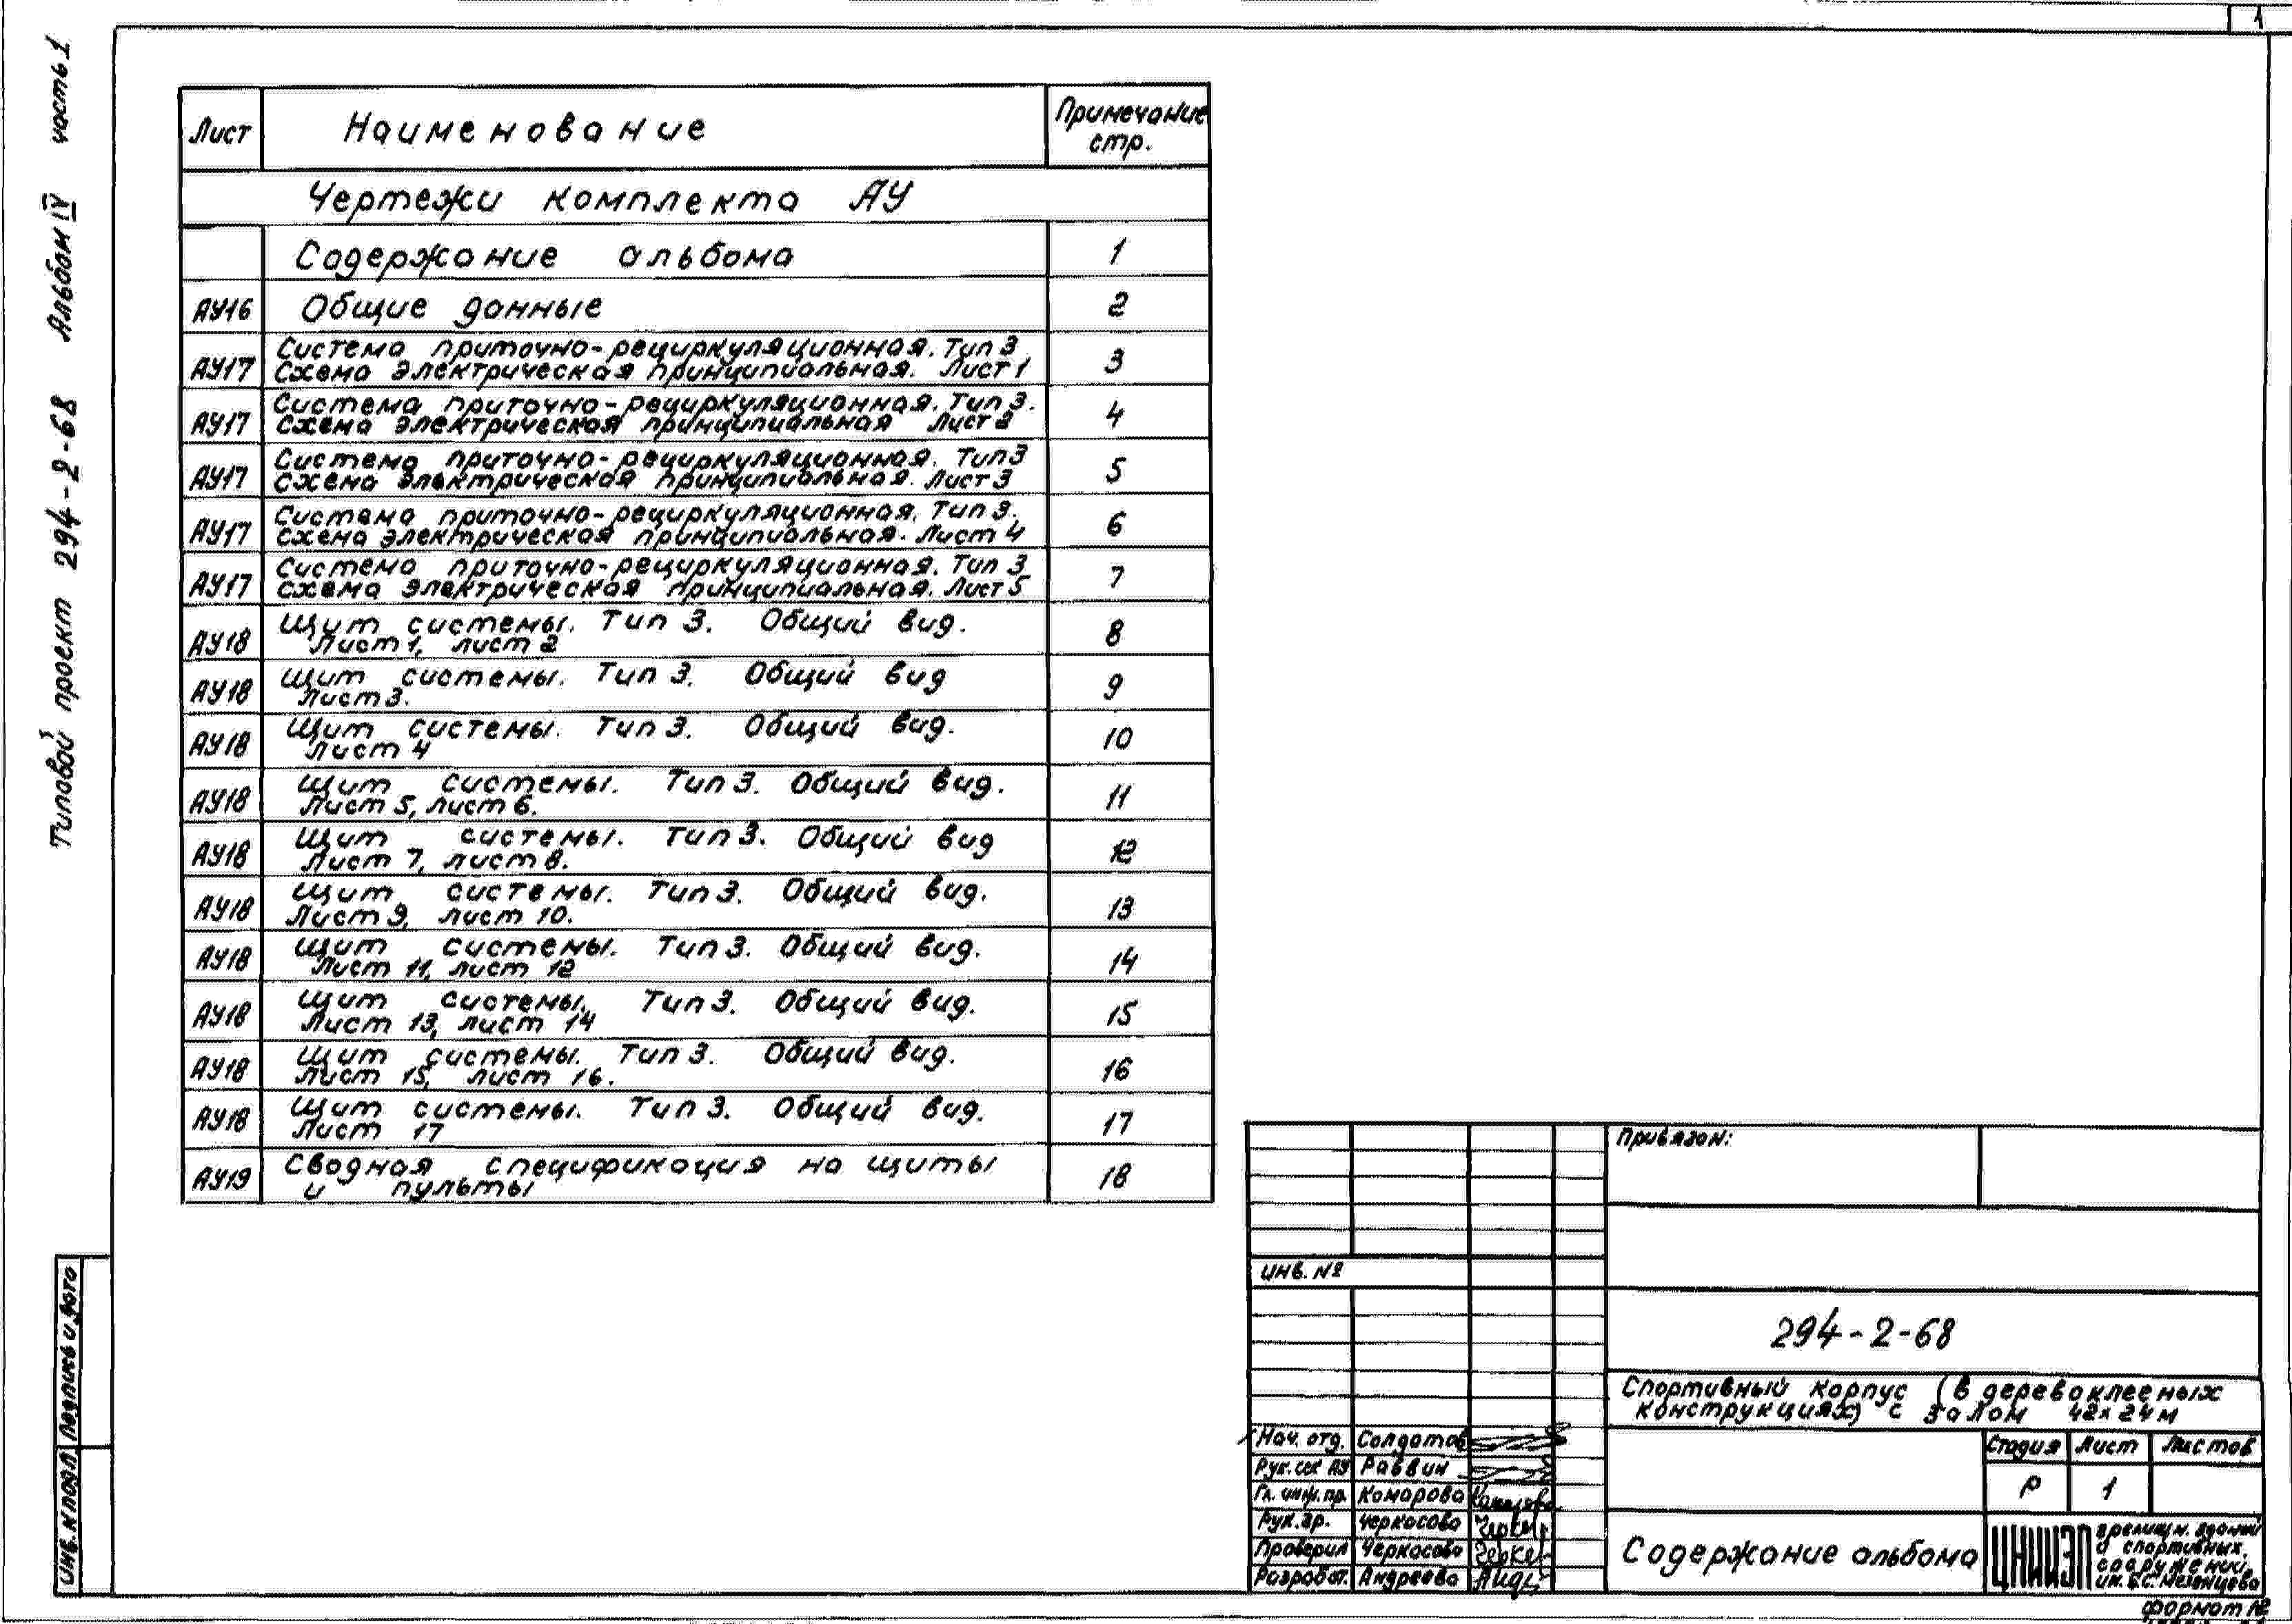 1
Типовой проект 294-2-68 Альбом IV часть 1
Лист Наименование Примечание
стр.
Чертежи комплекта АУ
Содержание альбома 1
АУ16 Общие данные 2
Система приточно-рециркуляционная. Тип 3
АУ17 Схема электрическая принципиальная. Лист 1 3
Система приточно-рециркуляционная. Тип 3.
АУ17 Схема электрическая принципиальная Лист 2 4
Система приточно-рециркуляционная. Тип 3
АУ17 Схема электрическая принципиальная. Лист 3 5
Система приточно-рециркуляционная. Тип 3.
АУ17 Схема электрическая принципиальная. Лист 4 6
Система приточно-рециркуляционная. Тип 3
АУ17 Схема электрическая принципиальная. Лист 5 7
Щит системы. Тип 3. Общий вид.
АУ18 Лист 1, лист 2 8
Щит системы. Тип 3. Общий вид
АУ18 Лист 3. 9
Щит системы. Тип 3. Общий вид.
АУ18 Лист 4 10
Щит системы. Тип 3. Общий вид.
АУ18 Лист 5, лист 6. 11
Щит системы. Тип 3. Общий вид
АУ18 Лист 7, лист 8. 12
Щит системы. Тип 3. Общий вид.
АУ18 Лист 9, лист 10. 13
Щит системы. Тип 3. Общий вид.
АУ18 Лист 11, лист 12 14
Щит системы. Тип 3. Общий вид.
АУ18 Лист 13, лист 14 15
Щит системы. Тип 3. Общий вид.
АУ18 Лист 15, лист 16. 16
Щит системы. Тип 3. Общий вид.
АУ18 Лист 17 17
Сводная спецификация на щиты
АУ19 и пульты 18
Инв. № подл Подпись и дата
Привязан:
инв. №
294-2-68
Спортивный корпус (в деревоклееных
конструкциях) с залом 42х24м
Нач. отд. Солдатов
Рук. сек АУ Раввин
Гл. инж. пр. Комарова
Рук. гр. Черкасова
Проверил Черкасова
Разработ. Андреева
Стадия Лист Листов
Р 1
Содержание альбома
ЦНИИЭП зрелищн. зданий
и спортивных
сооружений
им. Б.С. Мезенцева
формат 12